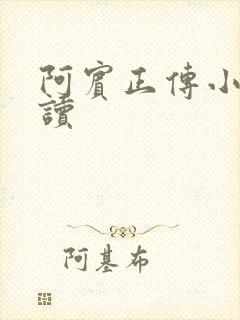 阿賓正傳小
讀
阿基布